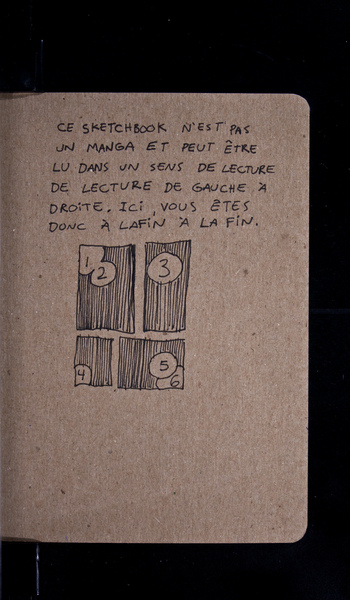 CE SKETCHBOOK N'EST PAS
UN MANGA ET PEUT ÊTRE
LU DANS UN SENS DE LECTURE
DE LECTURE DE GAUCHE À
DROITE. ICI, VOUS ÊTES
DONC À LAFIN À LA FIN.
1
2
3
4
5
6